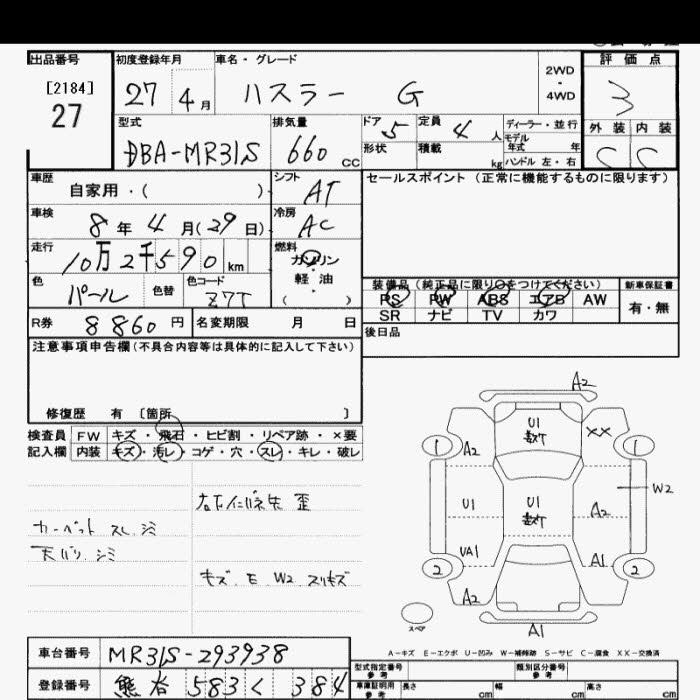 出品番号
[2184]
27
初度登録年月
27 4月
車名・グレード
ハスラー G
2WD
・
4WD
評価点
3
外装 内装
C C
型式
DBA-MR31S
排気量
660 CC
ドア 5
形状
定員 4 人
積載 kg
ディーラー・並行
モデル
年式 年
ハンドル 左・右
車歴
自家用・( )
シフト
AT
セールスポイント (正常に機能するものに限ります)
車検
8年 4月(29日)
冷房
AC
走行
10万2千590 km
燃料
ガソリン
・
軽油
( )
色
パール
色替
色コード
Z7T
装備品 (純正品に限り〇をつけてください)
PS PW ABS エアB AW
SR ナビ TV カワ
新車保証書
有・無
R券 8860円
名変期限 月 日
後日品
注意事項申告欄(不具合内容等は具体的に記入して下さい)
修復歴 有 〔箇所 〕
検査員
記入欄
FW キズ・飛石・ヒビ割・リペア跡・×要
内装 キズ・汚レ・コゲ・穴・スレ・キレ・破レ
カーペット スレ シミ
天バリ シミ
キズ E W2 スリキズ
A2
U1
XX
1
1
A2
U1
U1
A2
W2
UA1
A1
2
2
A2
スペア
A1
A-キズ E-エクボ U-凹み W-補修跡 S-サビ C-腐食 XX-交換済
車台番号
MR31S-293938
登録番号
熊谷 583 く 384
型式指定番号
参考
類別区分番号
参考
車庫証明用
参考
長さ cm
幅 cm
高さ cm